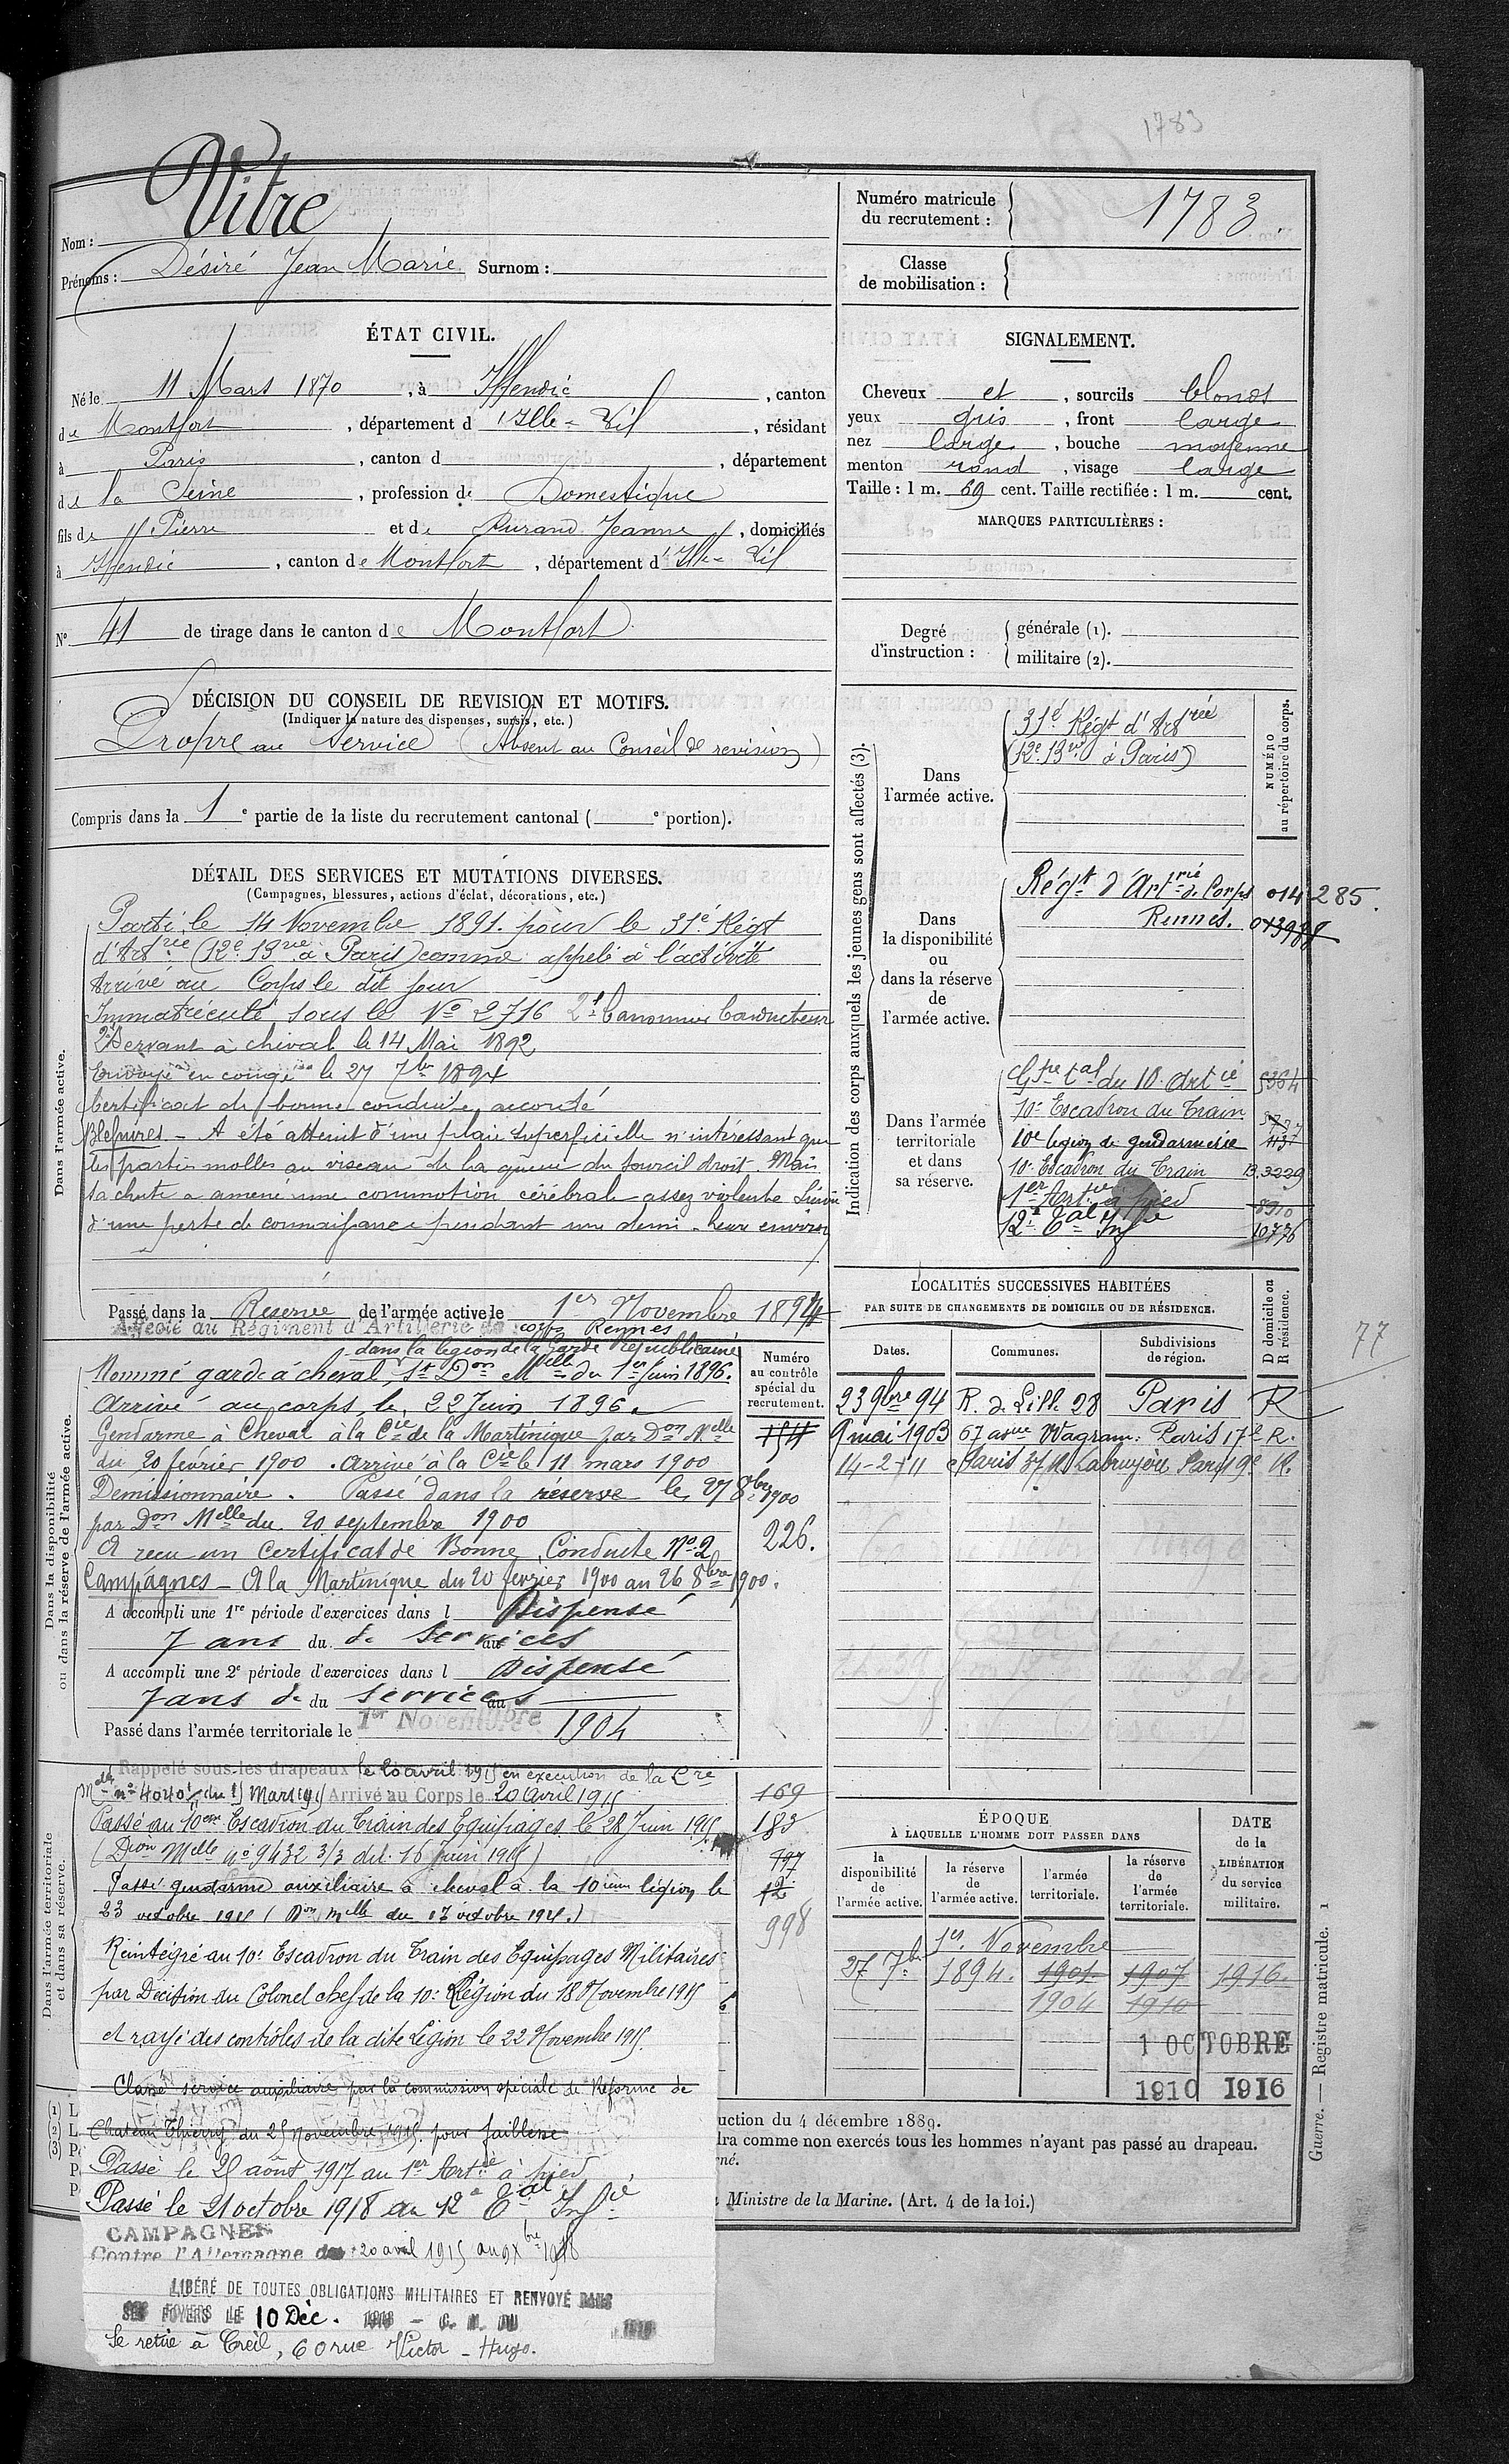 1783
Nom : Vitre
Prénoms : Désiré Jean Marie Surnom :
Numéro matricule du recrutement : 1783
Classe de mobilisation :
ÉTAT CIVIL.
Né le 11 Mars 1870, à Iffendic, canton
de Montfort, département d'Ille-Vil, résidant
à Paris, canton d , département
de la Seine, profession de Domestique
fils de ff Pierre et de Durand Jeanne, domiciliés
à Iffendic, canton de Montfort, département d'Ille-Vil
N° 41 de tirage dans le canton de Montfort
SIGNALEMENT.
Cheveux et, sourcils blonds
yeux gris, front large
nez large, bouche moyenne
menton rond, visage large
Taille : 1 m. 69 cent. Taille rectifiée : 1 m. cent.
MARQUES PARTICULIÈRES :
Degré d'instruction :
générale (1).
militaire (2).
DÉCISION DU CONSEIL DE REVISION ET MOTIFS.
(Indiquer la nature des dispenses, sursis, etc.)
Propre au Service (Absent au Conseil de revision)
Compris dans la 1e partie de la liste du recrutement cantonal ( e portion).
DÉTAIL DES SERVICES ET MUTATIONS DIVERSES.
(Campagnes, blessures, actions d'éclat, décorations, etc.)
Dans l'armée active.
Parti le 14 Novembre 1891 pour le 31e Régt
d'Artrie (12e Brie à Paris) comme appelé à l'activité
Arrivé au Corps le dit jour
Immatriculé sous le No 2716 2e Canonnier Conducteur
2e Servant à cheval le 14 Mai 1892
Envoyé en congé le 27 7bre 1894
Certificat de bonne conduite accordé
Blessures - A été atteint d'une plaie superficielle n'intéressant que
les parties molles au niveau de la queue du sourcil droit. Mais
sa chute a amené une commotion cérébrale assez violente suivie
d'une perte de connaissance pendant une demi-heure environ
Passé dans la Réserve de l'armée active le 1er Novembre 1894
Affecté au Régiment d'Artillerie de corps Rennes
Indication des corps auxquels les jeunes gens sont affectés (3).
NUMÉRO au répertoire du corps.
Dans l'armée active.
31e Régt d'Artrie
(12e Brie à Paris)
Dans la disponibilité ou dans la réserve de l'armée active.
Régt d'Artrie de Corps 014285.
Rennes. 013988
Dans l'armée territoriale et dans sa réserve.
Gpe tal du 10. Artie 5364
10e Escadron du Train
10e légion de gendarmerie 1137
10e Escadron du Train 13.3229
1er Artie à pied 8910
12e Tal Infie 10776
Dans la disponibilité ou dans la réserve de l'armée active.
dans la légion de la Garde Républicaine
Nommé garde à cheval, St Don Melle du 1er Juin 1896.
Arrivé au corps le 22 Juin 1896.
Gendarme à Cheval à la Cie de la Martinique par Don Melle
du 20 février 1900. Arrivé à la Cie le 11 mars 1900
Démissionnaire. Passé dans la réserve le 27 8bre 1900
par Don Melle du 20 septembre 1900
A reçu un Certificat de Bonne Conduite No 2
Campagnes - A la Martinique du 20 février 1900 au 26 8bre 1900.
A accompli une 1re période d'exercices dans l Dispensé
7 ans du de services au
A accompli une 2e période d'exercices dans l Dispensé
7 ans de du services au
Passé dans l'armée territoriale le 1er Novembre 1904
Numéro au contrôle spécial du recrutement.
1511
226.
LOCALITÉS SUCCESSIVES HABITÉES
PAR SUITE DE CHANGEMENTS DE DOMICILE OU DE RÉSIDENCE.
Dates. Communes. Subdivisions de région. D domicile ou R résidence.
23 9bre 94 R. de Lille 28 Paris R
9 mai 1903 67 avue Wagram. Paris 17e R.
14-2-11 Paris 37 R. Labruyère Paris 9e R.
77
Dans l'armée territoriale et dans sa réserve.
Rappelé sous les drapeaux le 20 avril 1915 en exécution de la Cre
Melle n° 4040 du 15 Mars 1915 Arrivé au Corps le 20 Avril 1915
Passé au 10em Escadron du Train des Equipages le 28 Juin 1915
(Dion Melle n° 9432 3/3 del. 16 Juin 1915)
Passé gendarme auxiliaire à cheval à la 10ième légion le
23 octobre 1915 (Don Melle du 17 octobre 1915.)
Réintégré au 10e Escadron du Train des Equipages Militaires
par Décision du Colonel chef de la 10e Légion du 18 Novembre 1915
et rayé des contrôles de la dite Légion le 22 Novembre 1915.
Classé service auxiliaire par la commission spéciale de Réforme de
Chateau Thierry du 25 Novembre 1915 pour faiblesse
Passé le 25 août 1917 au 1er Artie à pied
Passé le 21 octobre 1918 au 12e Tal Infie
CAMPAGNES
Contre l'Allemagne du 20 avril 1915 au 9 Xbre 1918
LIBÉRÉ DE TOUTES OBLIGATIONS MILITAIRES ET RENVOYÉ DANS
SES FOYERS LE 10 Déc. 1918 - C. M. DU
Se retire à Creil, 60 rue Victor-Hugo.
169
183
197
12
998
ÉPOQUE
À LAQUELLE L'HOMME DOIT PASSER DANS
la disponibilité de l'armée active. la réserve de l'armée active. l'armée territoriale. la réserve de l'armée territoriale. DATE de la LIBÉRATION du service militaire.
1er Novembre
27 7bre 1894. 1901. 1907 1916.
1904 1910
1 OCTOBRE
1910 1916
uction du 4 décembre 1889.
dra comme non exercés tous les hommes n'ayant pas passé au drapeau.
rné.
Ministre de la Marine. (Art. 4 de la loi.)
Guerre. — Registre matricule. 1